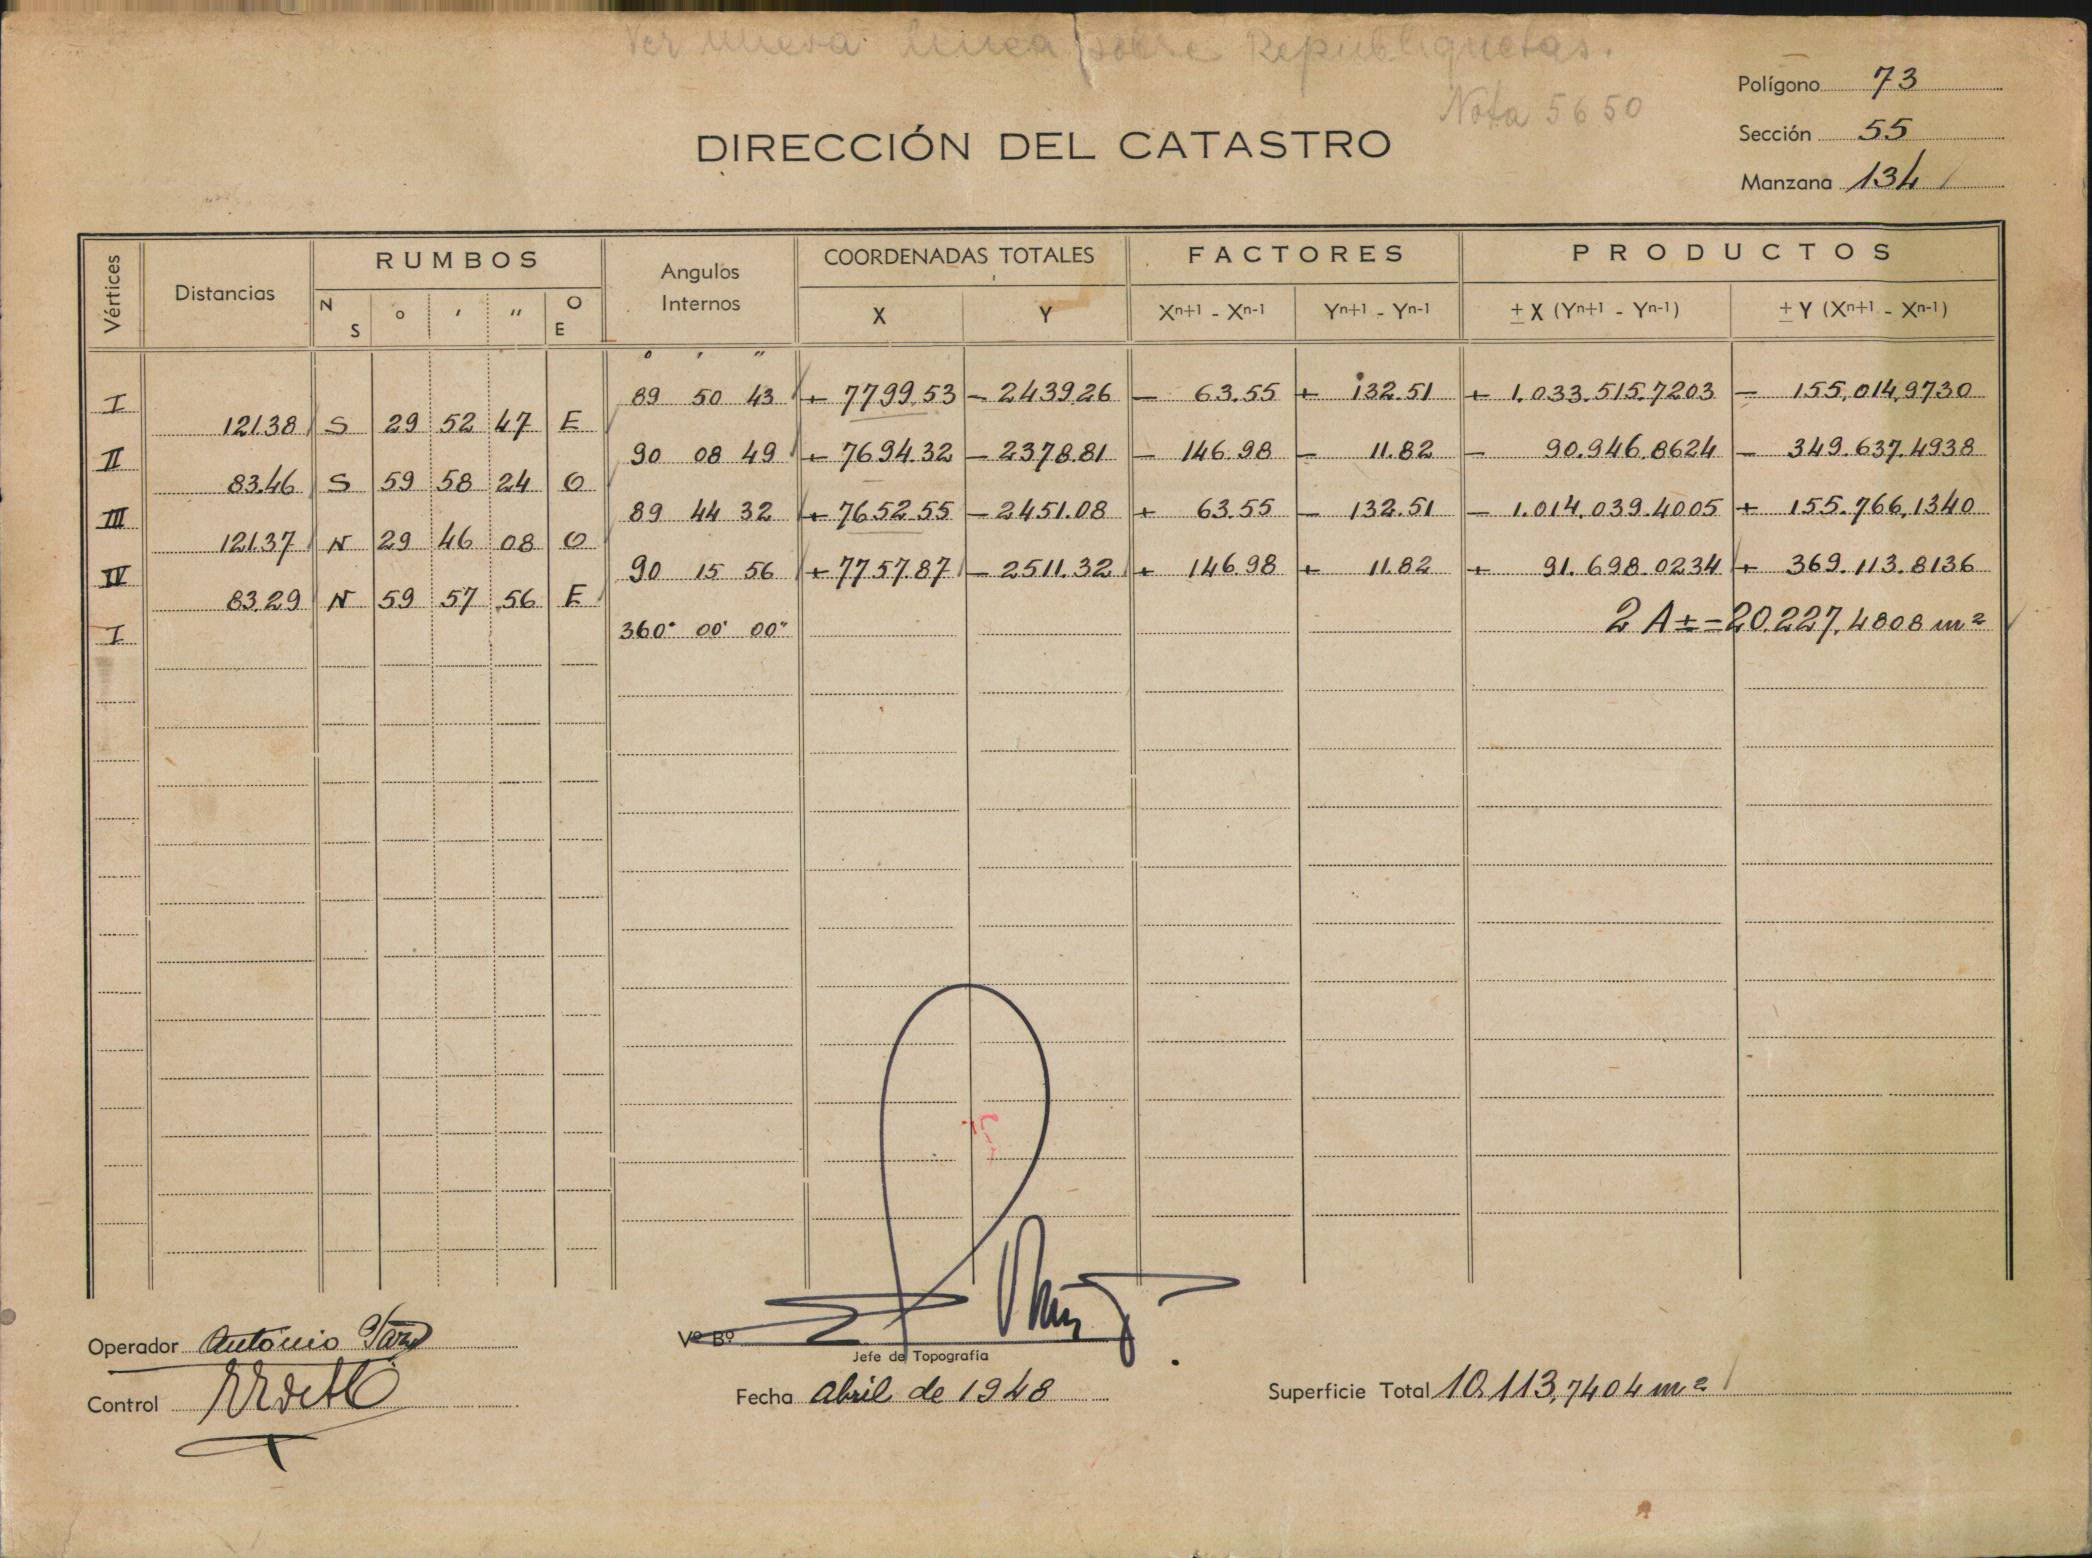 Ver nueva linea sobre Republiquetas.
Nota 5650
Polígono 73
Sección 55
Manzana 134
DIRECCIÓN DEL CATASTRO
Vértices Distancias RUMBOS Angulos Internos COORDENADAS TOTALES FACTORES PRODUCTOS
N S o ' " O E X Y Xn+1 - Xn-1 Yn+1 - Yn-1 ± X (Yn+1 - Yn-1) ± Y (Xn+1 - Xn-1)
o ' "
I 89 50 43 + 7799.53 - 2439.26 - 63.55 + 132.51 + 1.033.515.7203 - 155.014,9730
121.38 S 29 52 47 E
II 90 08 49 + 7694.32 - 2378.81 - 146.98 - 11.82 - 90.946.8624 - 349.637.4938
83.46 S 59 58 24 O
III 89 44 32 + 7652.55 - 2451.08 + 63.55 - 132.51 - 1.014.039.4005 + 155.766,1340
121.37 N 29 46 08 O
IV 90 15 56 + 7757.87 - 2511.32 + 146.98 + 11.82 + 91.698.0234 + 369.113.8136
83.29 N 59 57 56 E
I 360° 00' 00" 2 A ± = 20.227,4808 m²
Operador Antonio
Vº Bº
Jefe de Topografía
Control
Fecha abril de 1948
Superficie Total 10.113,7404 m²